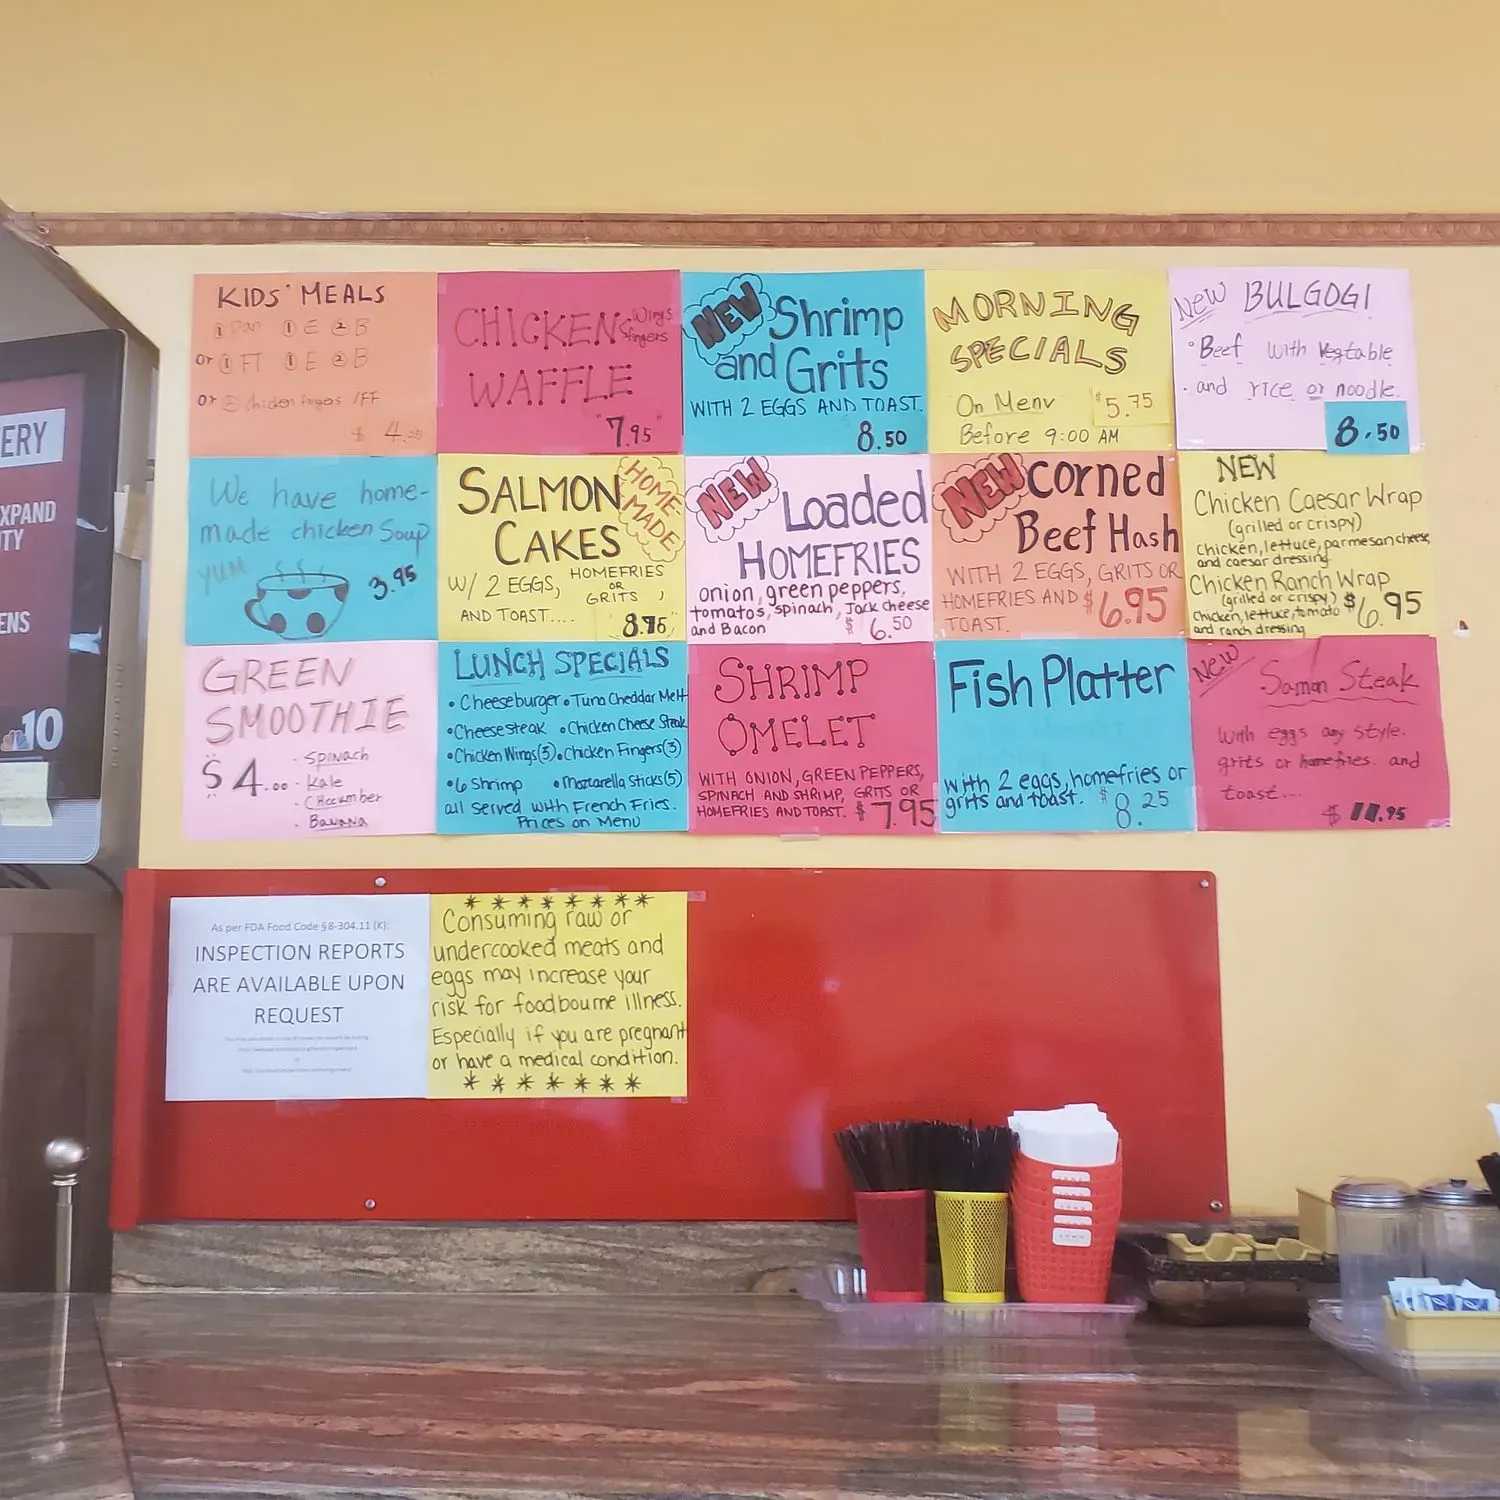 KIDS' MEALS
① Pan ① E ② B
or ① FT ① E ② B
or ② chicken fingers /FF
$ 4.
CHICKEN Wings
fingers
WAFFLE
7.95
NEW Shrimp
and Grits
WITH 2 EGGS AND TOAST.
8.50
MORNING
SPECIALS
On Menu
$5.75
Before 9:00 AM
New BULGOGI
• Beef with Vegtable
• and rice or noodle.
8.50
We have home-
made chicken Soup
YUM
3.95
SALMON
CAKES
HOME-
MADE
W/ 2 EGGS, HOMEFRIES
OR
GRITS,
AND TOAST....
8.75
NEW Loaded
HOMEFRIES
onion, green peppers,
tomatos, spinach, Jack cheese
and Bacon
$ 6.50
NEW Corned
Beef Hash
WITH 2 EGGS, GRITS OR
HOMEFRIES AND $6.95
TOAST.
NEW
Chicken Caesar Wrap
(grilled or crispy)
chicken, lettuce, parmesan cheese,
and caesar dressing.
Chicken Ranch Wrap
(grilled or crispy)
chicken, lettuce, tomato $6.95
and ranch dressing
GREEN
SMOOTHIE
$4.00
- Spinach
- Kale
- Cucumber
- Banana
LUNCH SPECIALS
• Cheeseburger • Tuna Cheddar Melt
• Cheesesteak • Chicken Cheese Steak
• Chicken Wings(5) • Chicken Fingers(3)
• 6 Shrimp • Mozzarella Sticks(5)
all served with French Fries.
Prices on Menu
SHRIMP
OMELET
WITH ONION, GREEN PEPPERS,
SPINACH AND SHRIMP, GRITS OR
HOMEFRIES AND TOAST. $7.95
Fish Platter
with 2 eggs, homefries or
grits and toast. $8.25
New
Saman Steak
with eggs any style.
grits or homefries. and
toast...
$ 11.95
ERY
XPAND
TY
ENS
10
As per FDA Food Code §8-304.11 (K):
INSPECTION REPORTS
ARE AVAILABLE UPON
REQUEST
* * * * * * *
Consuming raw or
undercooked meats and
eggs may increase your
risk for foodbourne illness.
Especially if you are pregnant
or have a medical condition.
* * * * * * *